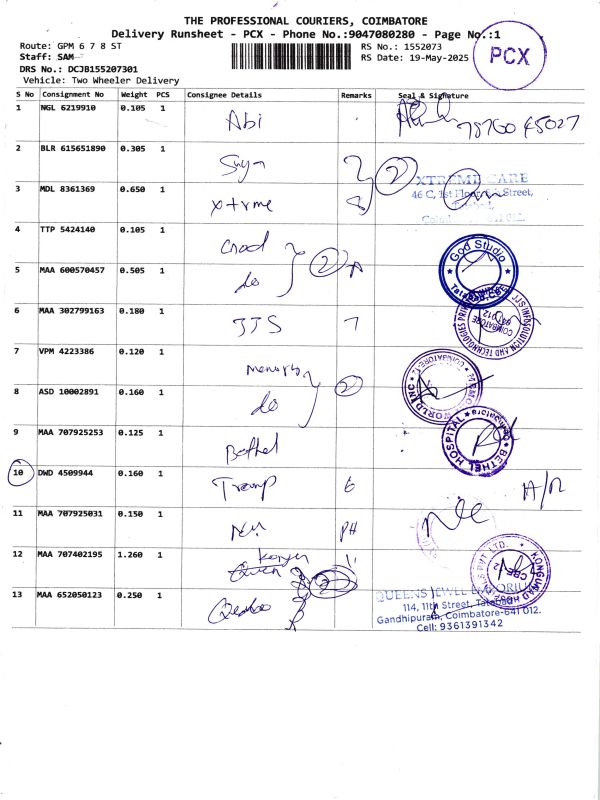 THE PROFESSIONAL COURIERS, COIMBATORE
Delivery Runsheet - PCX - Phone No.:9047080280 - Page No.:1
Route: GPM 6 7 8 ST
RS No.: 1552073
Staff: SAM
RS Date: 19-May-2025
DRS No.: DCJB155207301
Vehicle: Two Wheeler Delivery
PCX
S No Consignment No Weight PCS Consignee Details Remarks Seal & Signature
1 NGL 6219910 0.105 1 Abi 78760 45027
2 BLR 615651890 0.305 1 2
XTREME CARE
46 C, 1st Floor, Street,
3 MDL 8361369 0.650 1 xtrme
4 TTP 5424140 0.105 1
God Studio
Tatabad, CBE
5 MAA 600570457 0.505 1 do 2
6 MAA 302799163 0.180 1 JJS 7
JJS INFOSOLUTION AND TECHNOLOGIES
COIMBATORE
641 012
7 VPM 4223386 0.120 1
WORLD INC
COIMBATORE
8 ASD 10002891 0.160 1 do 2
9 MAA 707925253 0.125 1 Bethel
BETHEL HOSPITAL
Coimbatore
10 DWD 4509944 0.160 1 6
11 MAA 707925031 0.150 1 PH
12 MAA 707402195 1.260 1
PVT LTD.
CBE-12
13 MAA 652050123 0.250 1
QUEENS JEWEL EMPORIUM
114, 11th Street, Tatabad
Gandhipuram, Coimbatore-641 012.
Cell: 9361391342